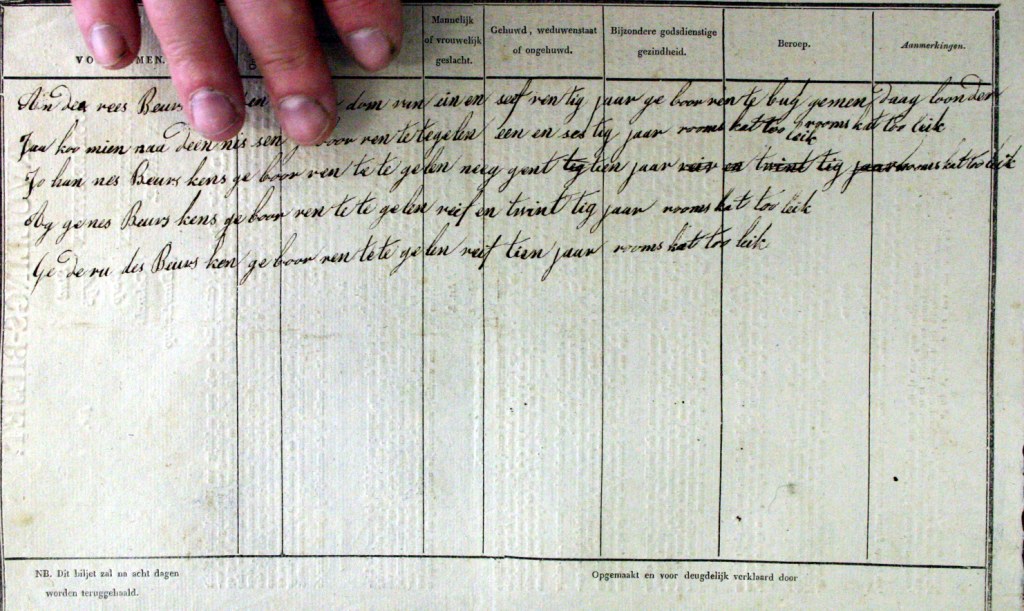 Mannelijk of vrouwelijk geslacht.
Gehuwd, weduwenstaat of ongehuwd.
Bijzondere godsdienstige gezindheid.
Beroep.
Aanmerkingen.
An dee rees Beurs dom van ün en seef ren tig jaar ge boor ren te bug gemen daag loonder
Jaa koo mien naa deen nis sen boor ren te tegelen een en ses tig jaar rooms kat too leik rooms kat too leik
Jo han nes Beurs kens ge boor ren te te ge len neeg gent tig tien jaar vier en twint tig jaar rooms kat too leik
Ag ge nes Beurs kens ge boor ren te te ge len vief en twint tig jaar rooms kat too leik
Ge de ru des Beurs ken ge boor ren te te ge len vief tien jaar rooms kat too leik
NB. Dit biljet zal na acht dagen
worden teruggehaald.
Opgemaakt en voor deugdelijk verklaard door